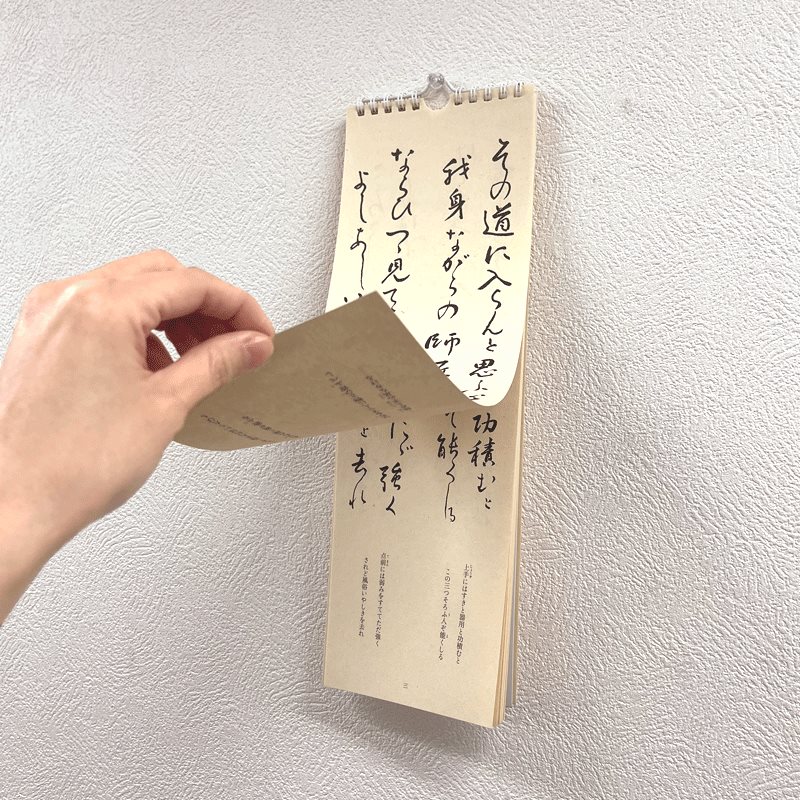 その道に入らんと思ふ
我身ながらの師
ならひつゝ見て
よしあし
功積むと
能くしる
強く
去れ
上手にはすきと器用と功積むと
この三つそろふ人ぞ能くしる
点前には弱みをすててただ強く
されど風俗いやしきを去れ
三